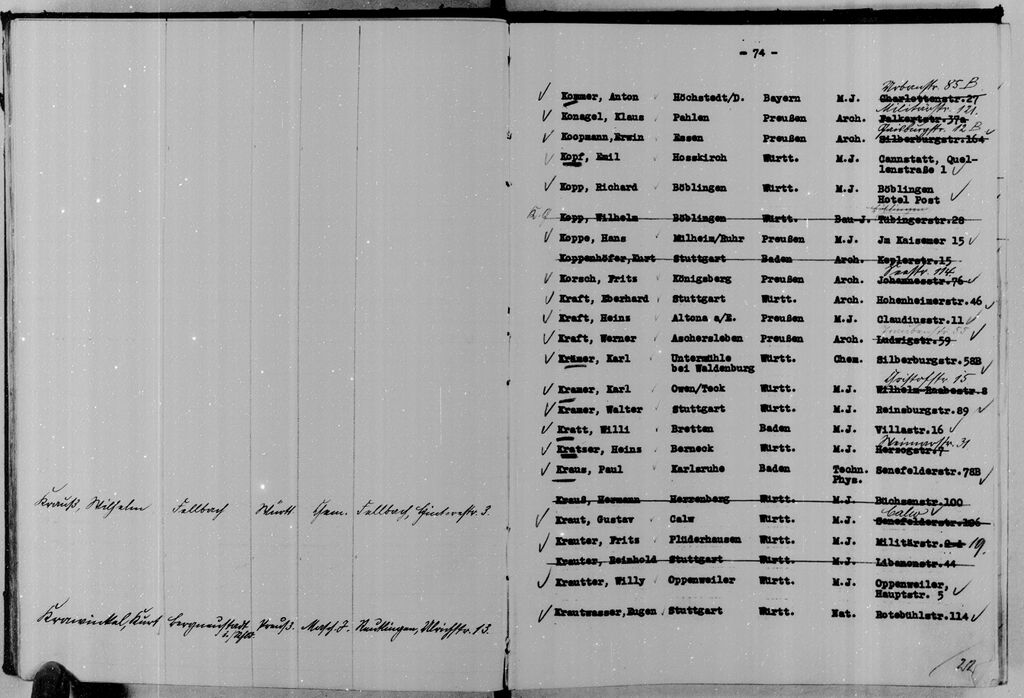 Krauß, Wilhelm Fellbach Württ Chem. Fellbach, Hinterestr. 3.
Krawinkel, Kurt Bergneustadt Preuß. Masch. J. Reutlingen, Ulrichstr. 13.
- 74 -
Urbanstr. 85 B
Kommer, Anton Höchstedt/D. Bayern M.J. Charlottenstr.27
Militärstr. 121.
Konagel, Klaus Pahlen Preußen Arch. Falkertstr.37a
Gaisburgstr. 12 B
Koopmann,Erwin Essen Preußen Arch. Silberburgstr.164
Kopf, Emil Hosskirch Württ. M.J. Cannstatt, Quel-
lenstraße 1
Kopp, Richard Böblingen Württ. M.J. Böblingen
Hotel Post
Böblingen
Kopp, Wilhelm Böblingen Württ. Bau-J. Tübingerstr.28
Koppe, Hans Mülheim/Ruhr Preußen M.J. Jm Kaisemer 15
Koppenhöfer,Kurt Stuttgart Baden Arch. Keplerstr.15
Seestr. 114.
Korsch, Frits Königsberg Preußen M.J. Johannesstr.76
Kraft, Eberhard Stuttgart Württ. Arch. Hohenheimerstr.46
Kraft, Heinz Altona a/E. Preußen M.J. Claudiusstr.11
Kraft, Werner Aschersleben Preußen Arch. Ludwigstr.59
Krämer, Karl Untermühle Württ. Chem. Silberburgstr.58B
bei Waldenburg
Christofstr. 15
Kramer, Karl Owen/Teck Württ. M.J. Wilhelm-Raabestr.8
Kramer, Walter Stuttgart Württ. M.J. Reinsburgstr.89
Kratt, Willi Bretten Baden M.J. Villastr.16
Weimarstr. 31.
Kratzer, Heinz Berneck Württ. M.J. Herzogstr.4
Kraus, Paul Karlsruhe Baden Techn. Senefelderstr.78B
Phys.
Krauß, Hermann Herrenberg Württ. M.J. Büchsenstr.100
Calw
Kraut, Gustav Calw Württ. M.J. Senefelderstr.106
Krauter, Fritz Plüderhausen Württ. M.J. Militärstr. 19.
Krauter, Reinhold Stuttgart Württ. M.J. Libanonstr.44
Krautter, Willy Oppenweiler Württ. M.J. Oppenweiler,
Hauptstr. 5
Krautwasser,Eugen Stuttgart Württ. Nat. Rotebühlstr.114